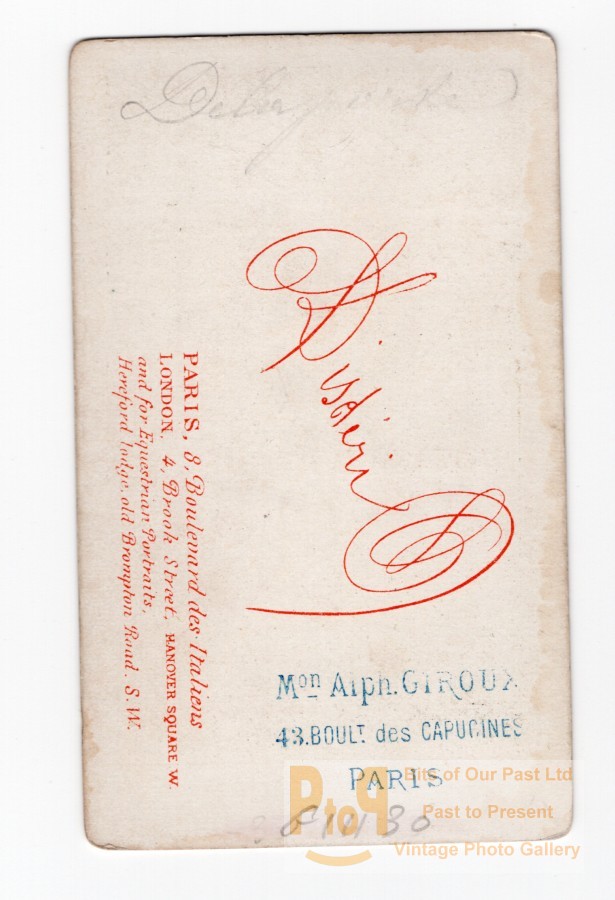 Disdéri
PARIS, 8, Boulevard des Italiens
LONDON, 4, Brook Street, HANOVER SQUARE W.
and for Equestrian Portraits,
Hereford lodge, old Brompton Road. S.W.
Mon Alph. GIROUX
43. BOULT. des CAPUCINES
PARIS
PtoP
Bits of Our Past Ltd
Past to Present
Vintage Photo Gallery